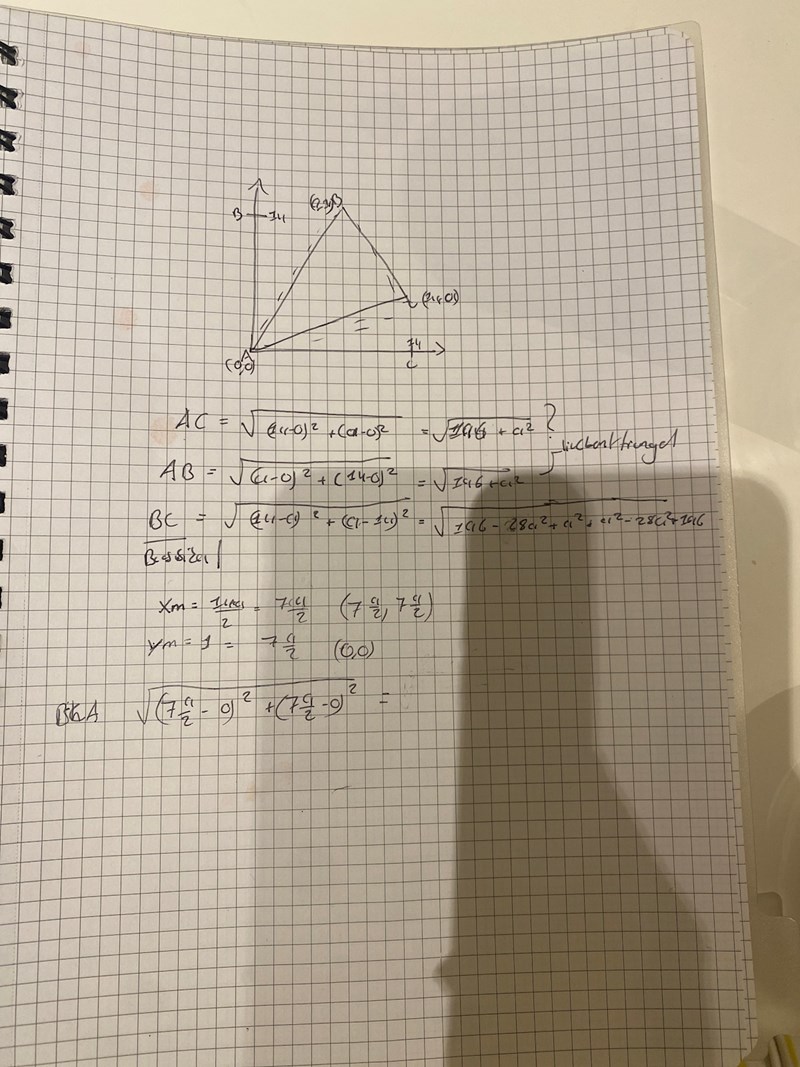 B 14
(a,14)B
(14,a)
A
(0,0)
14
C
AC = √(14-0)² + (a-0)² = √196 + a²
AB = √(a-0)² + (14-0)² = √196 + a²
BC = √(14-a)² + (a-14)² = √196 - 28a² + a² + a² - 28a² + 196
Xm = 14+a/2 = 7a/2 (7 a/2, 7 a/2)
Ym = 1 = 7 a/2 (0,0)
√(7 a/2 - 0)² + (7 a/2 - 0)² =